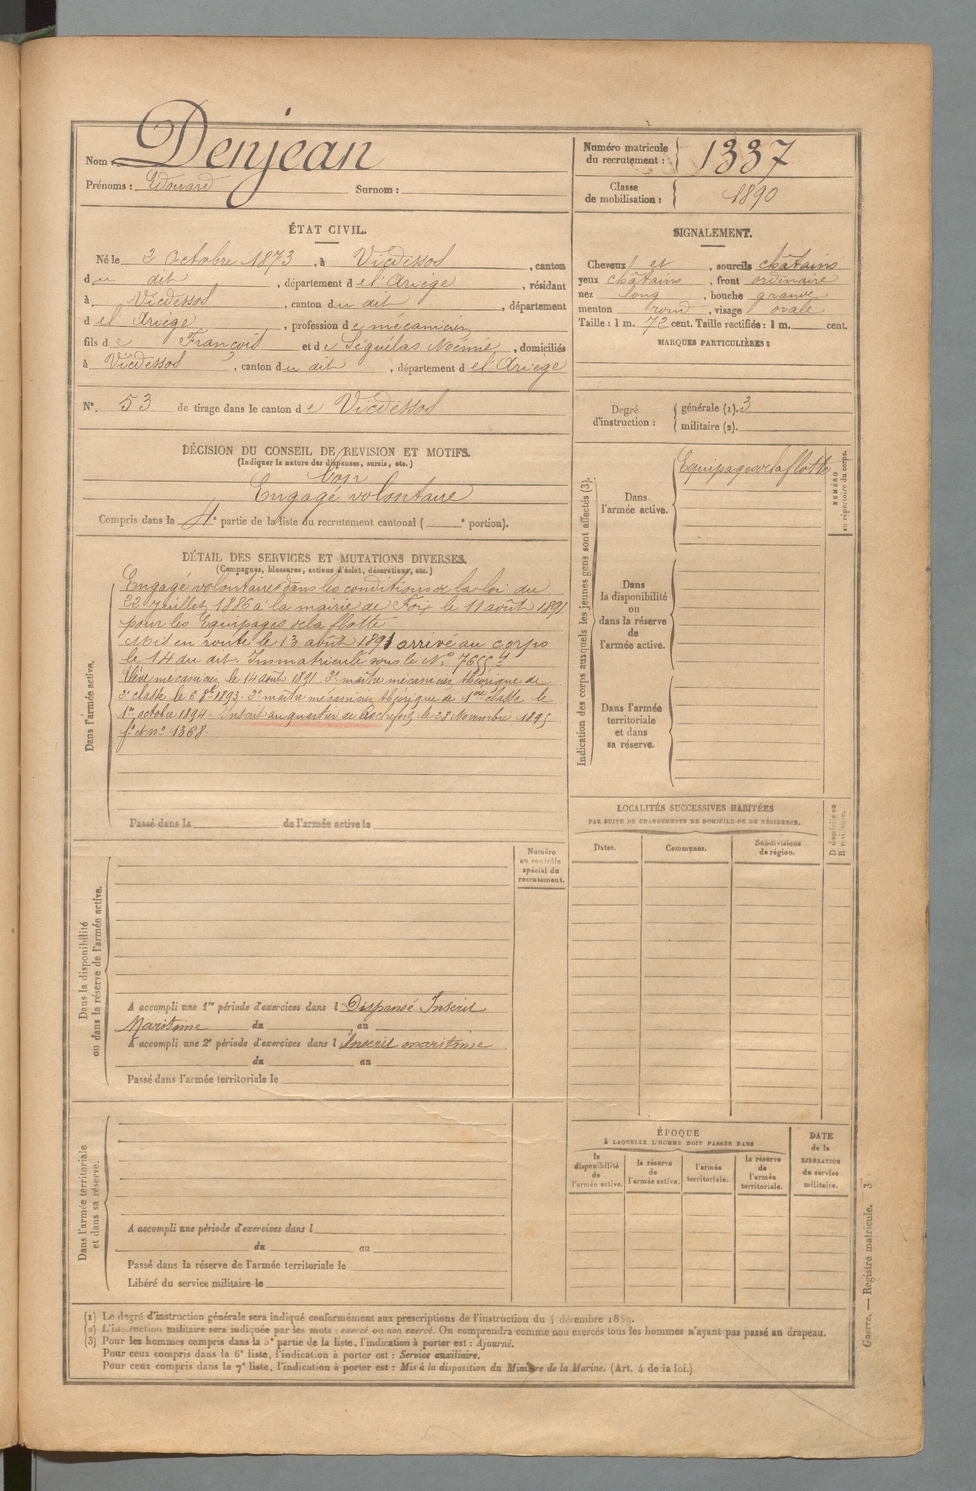 Nom : Denjean
Prénoms : Edouard Surnom :
Numéro matricule
du recrutement : 1337
Classe
de mobilisation : 1890
ÉTAT CIVIL.
Né le 2 Octobre 1873, à Vicdessos, canton
du dit, département de l'Ariège, résidant
à Vicdessos, canton du dit, département
de l'Ariège, profession de mécanicien
fils de François et de Séguélas Noémie, domiciliés
à Vicdessos, canton du dit, département de l'Ariège
N°. 53 de tirage dans le canton de Vicdessos
SIGNALEMENT.
Cheveux et, sourcils châtains
yeux châtains, front ordinaire
nez long, bouche grande
menton rond, visage ovale
Taille : 1 m. 72 cent. Taille rectifiée : 1 m. cent.
MARQUES PARTICULIÈRES :
Degré
d'instruction :
générale (1). 3
militaire (2).
DÉCISION DU CONSEIL DE REVISION ET MOTIFS.
(Indiquer la nature des dispenses, sursis, etc.)
Bon
Engagé volontaire
Compris dans la 4e partie de la liste du recrutement cantonal ( e portion).
DÉTAIL DES SERVICES ET MUTATIONS DIVERSES.
(Campagnes, blessures, actions d'éclat, décorations, etc.)
Dans l'armée active.
Engagé volontaire dans les conditions de la loi du
22 Juillet 1886 à la mairie de Foix le 11 août 1891
pour les Equipages de la flotte
Mis en route le 13 août 1891 arrivé au corps
le 14 du dit. Immatriculé sous le N° 7655
Elève mécanicien le 14 août 1891. 2e maître mécanicien théorique de
2e classe le 6 8bre 1893. 2e maître mécanicien théorique de 1ère classe le
1er octobre 1894. Inscrit au quartier de Rochefort le 28 Novembre 1895
f° n° 1368.
Passé dans la de l'armée active le
Indication des corps auxquels les jeunes gens sont affectés (3).
Dans
l'armée active.
Equipages de la flotte
NUMÉRO
au répertoire du corps.
Dans
la disponibilité
ou
dans la réserve
de
l'armée active.
Dans l'armée
territoriale
et dans
sa réserve.
LOCALITÉS SUCCESSIVES HABITÉES
PAR SUITE DE CHANGEMENTS DE DOMICILE OU DE RÉSIDENCE.
Dates. Communes. Subdivisions
de région.
Numéro
au contrôle
spécial du
recrutement.
Dans la disponibilité
ou dans la réserve de l'armée active.
A accompli une 1re période d'exercices dans l Dispensé Inscrit
Maritime du au
A accompli une 2e période d'exercices dans l Inscrit maritime
du au
Passé dans l'armée territoriale le
Dans l'armée territoriale
et dans sa réserve.
A accompli une période d'exercices dans l
du au
Passé dans la réserve de l'armée territoriale le
Libéré du service militaire le
ÉPOQUE
À LAQUELLE L'HOMME DOIT PASSER DANS
la
disponibilité
de
l'armée active.
la réserve
de
l'armée active.
l'armée
territoriale.
la réserve
de
l'armée
territoriale.
DATE
de la
LIBÉRATION
du service
militaire.
(1) Le degré d'instruction générale sera indiqué conformément aux prescriptions de l'instruction du 4 décembre 1889.
(2) L'instruction militaire sera indiquée par les mots : exercé ou non exercé. On comprendra comme non exercés tous les hommes n'ayant pas passé au drapeau.
(3) Pour les hommes compris dans la 5e partie de la liste, l'indication à porter est : Ajourné.
Pour ceux compris dans la 6e liste, l'indication à porter est : Service auxiliaire.
Pour ceux compris dans la 7e liste, l'indication à porter est : Mis à la disposition du Ministre de la Marine. (Art. 4 de la loi.)
Guerre. — Registre matricule. 3